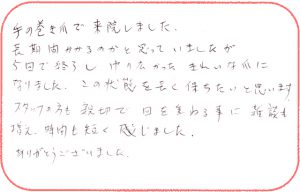 手の巻き爪で来院しました。
長期間かかるのかと思っていましたが
5回で終了し ゆがみなかった きれいな爪に
なりました。この状態を長く保ちたいと思います。
スタッフの方も親切で 回を重ねる事に 雑談も
増え 時間も短く感じました。
ありがとうございました。